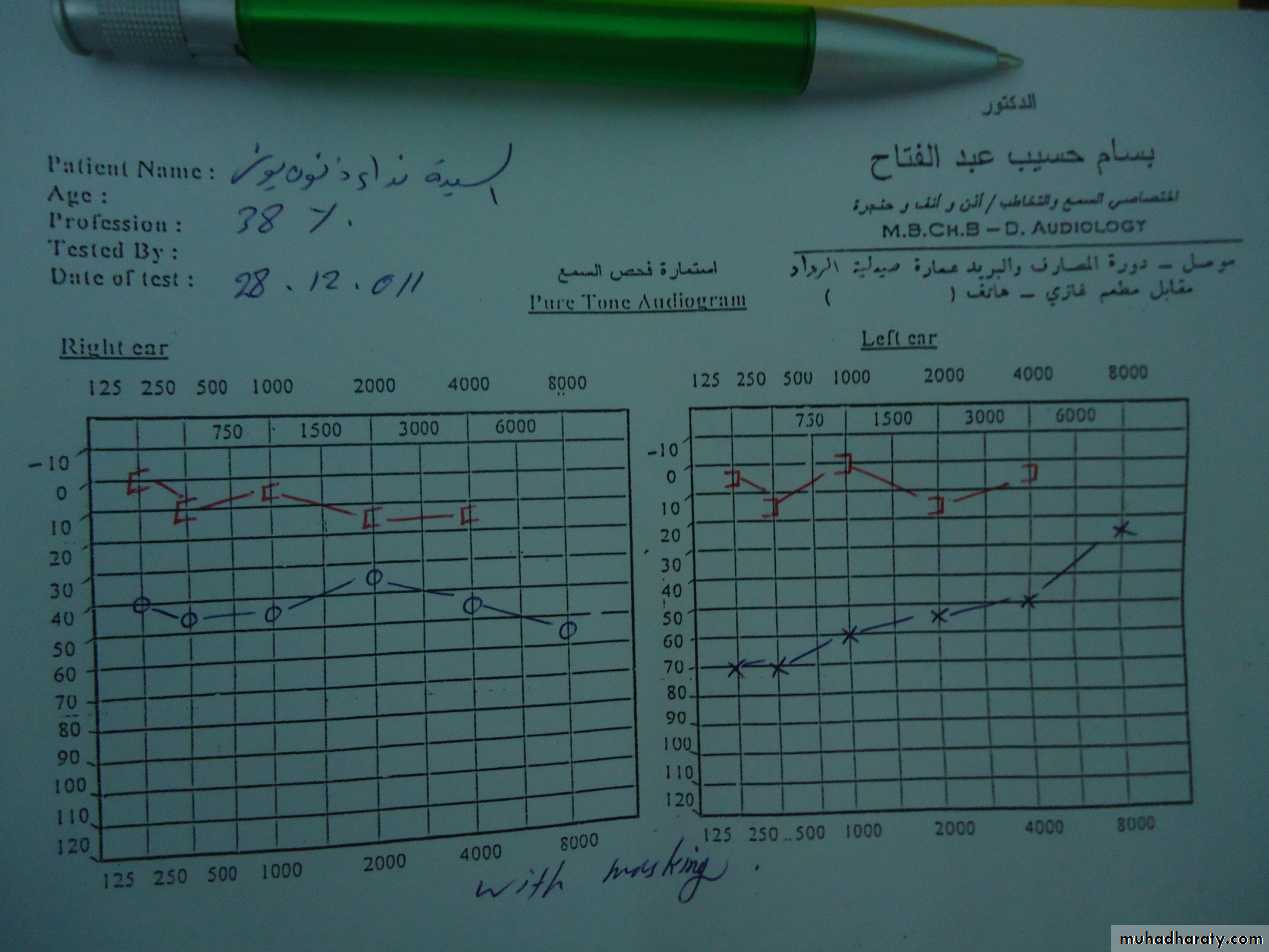 الدكتور
بسام حسيب عبد الفتاح
اختصاصي السمع والتخاطب / أذن و أنف و حنجرة
M.B.CH.B – D. AUDIOLOGY
موصل – دورة المصارف والبريد عمارة صيدلية الرواد
مقابل مطعم غازي – هاتف ( )
Patient Name : السيدة نداء ذنون يونس
Age :
Profession : 38 y.
Tested By :
Date of test : 28.12.011
استمارة فحص السمع
Pure Tone Audiogram
Right ear
125 250 500 1000 2000 4000 8000
750 1500 3000 6000
-10
0
10
20
30
40
50
60
70
80
90
100
110
120
125 250 500 1000 2000 4000 8000
Left ear
125 250 500 1000 2000 4000 8000
750 1500 3000 6000
-10
0
10
20
30
40
50
60
70
80
90
100
110
120
125 250 500 1000 2000 4000 8000
with masking .
muhadharaty.com